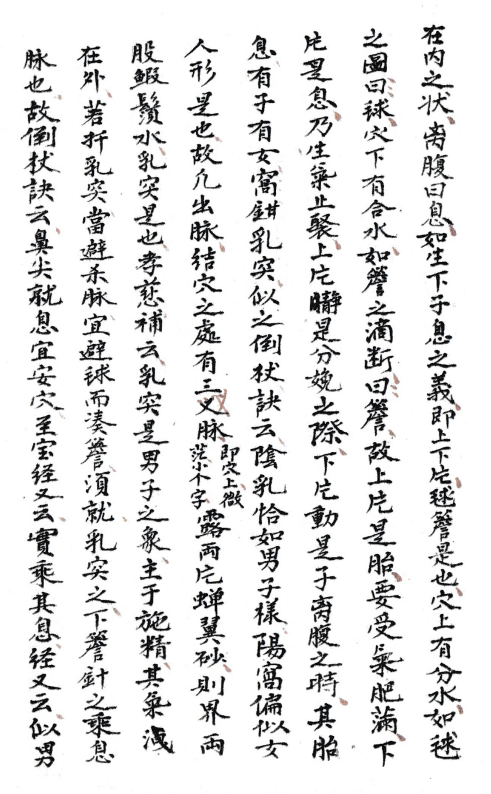 在内之状离腹曰息如生下子息之義即上下片毬簷是也穴上有分水如毬
之圓曰毬穴下有合水如簷之滴断曰簷故上片是胎要受氣肥滿下
片是息乃生氣止聚上片矃是分娩之際下片動是子离腹之時其胎
息有子有女窩鉗乳突似之倒杖訣云陰乳恰如男子樣陽窩偏似女
人形是也故凡出脉结穴之處有三叉脉即穴上微茫小个字露兩片蝉翼砂則界兩
股蝦鬚水乳突是也孝慈補云乳突是男子之象主于施精其氣洩
在外若扦乳突當避杀脉宜避毬而凑簷須就乳突之下簷針之乘息
脉也故倒杖訣云鼻尖就息宜安穴至宝经又云實乘其息经又云似男